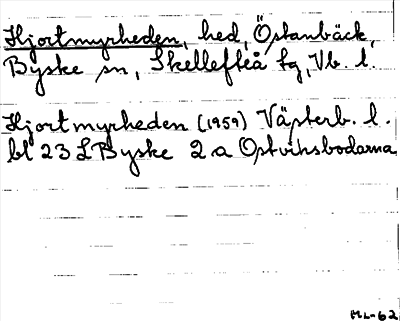 Hjortmyrheden, hed, Östanbäck,
Byske sn, Skellefteå tg, Vb. l.
Hjortmyrheden (1959) Västerb. l.
bl 23 L Byske 2 a Ostvihsbodarna
ML-62